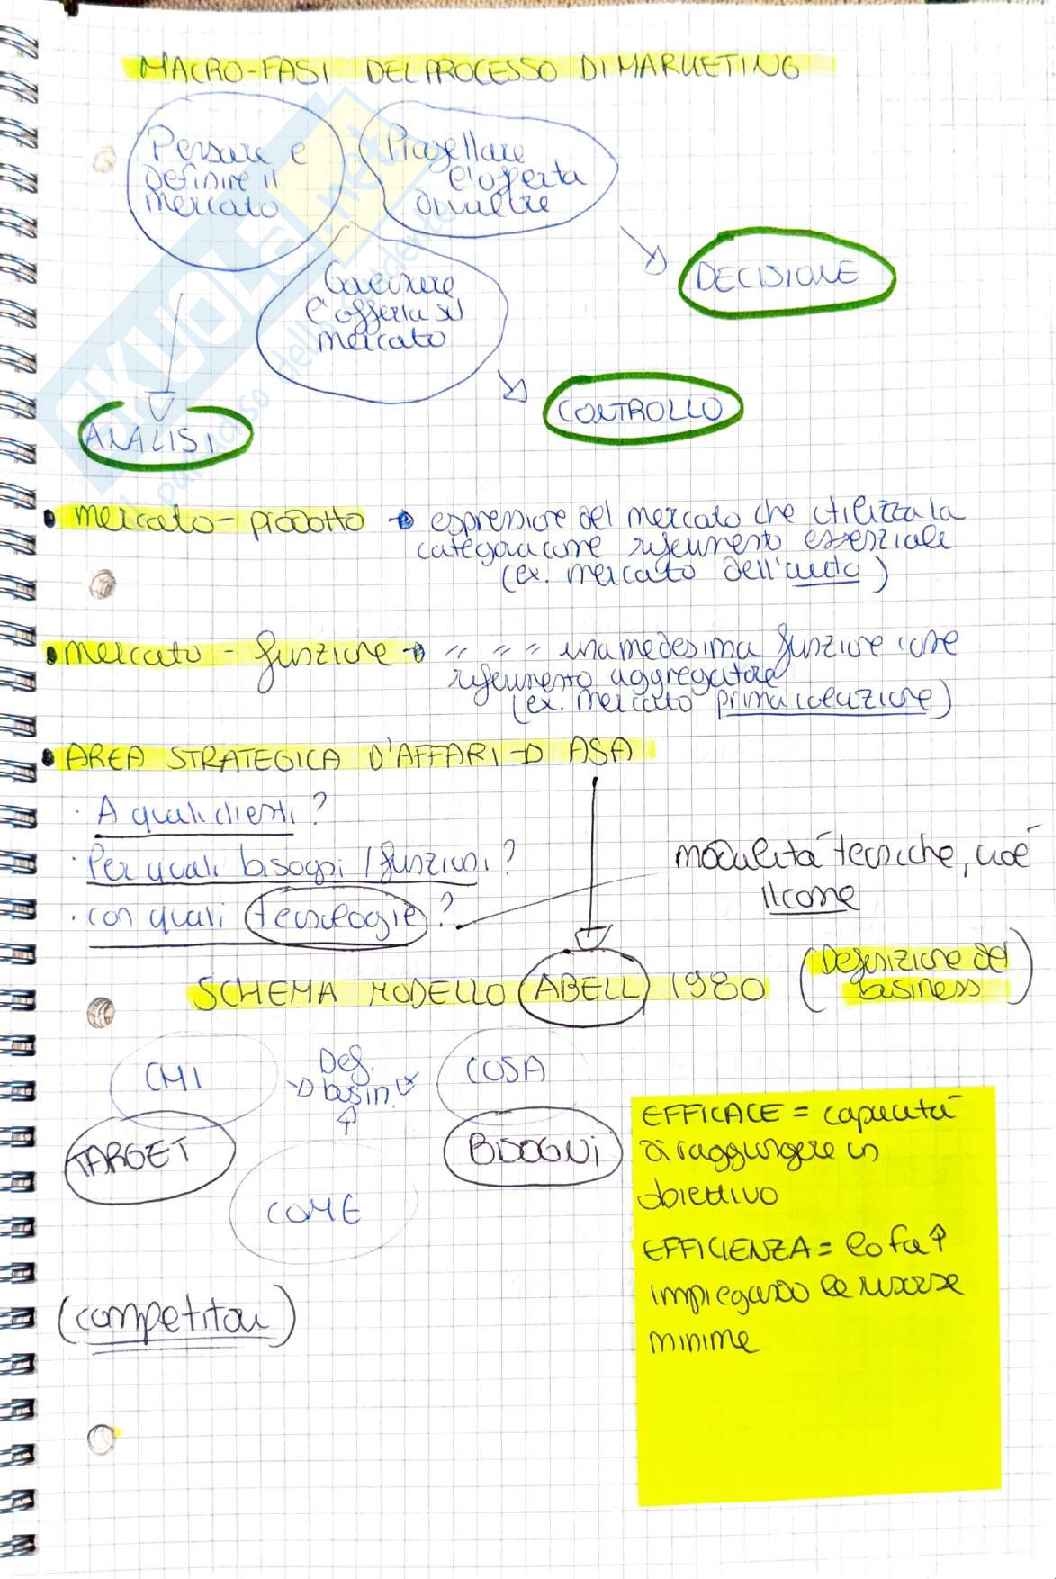 MACRO-FASI DEL PROCESSO DI MARKETING
Pensare e
Definire il
mercato
Progettare
l'offerta
Governare
l'offerta sul
mercato
DECISIONE
CONTROLLO
ANALISI
SKUOLA.net
• mercato - prodotto → espressione del mercato che utilizza la
categoria come riferimento essenziale
(ex. mercato dell'auto)
• mercato - funzione → " " " una medesima funzione come
riferimento aggregatore
(ex. mercato prima colazione)
• AREA STRATEGICA D'AFFARI → ASA
· A quali clienti?
· Per quali bisogni / funzioni?
· con quali tecnologie?
modalità tecniche, cioè
il come
SCHEMA MODELLO ABELL 1980
(Definizione del
business)
CHI
Def.
busin.
COSA
TARGET
BISOGNI
COME
(competitor)
EFFICACE = capacità
di raggiungere un
obiettivo
EFFICIENZA = lo fa
impiegando le risorse
minime